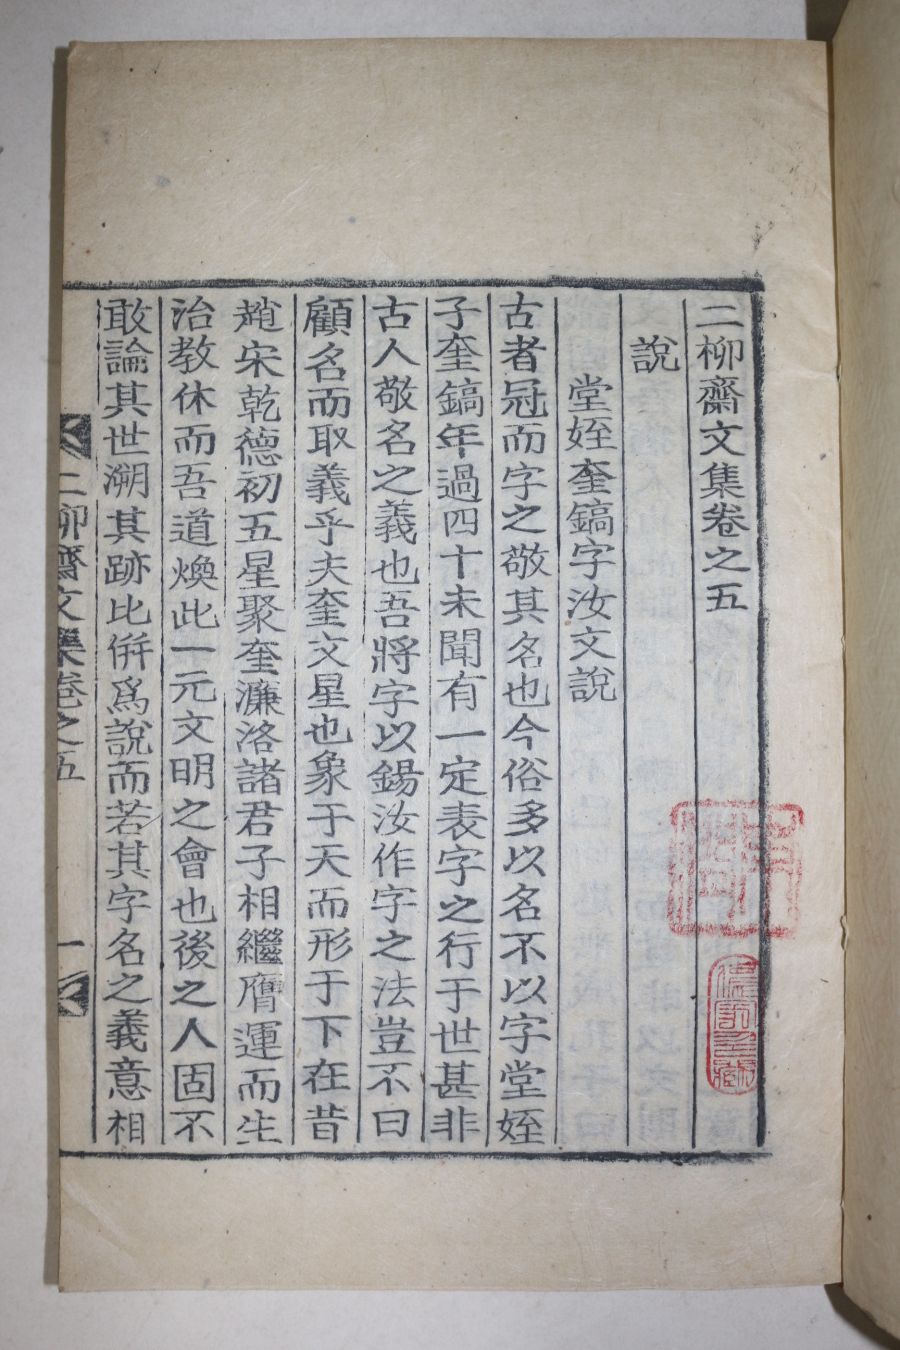 二柳齋文集卷之五
說
堂姪奎鎬字汝文說
古者冠而字之敬其名也今俗多以名不以字堂姪
子奎鎬年過四十未聞有一定表字之行于世甚非
古人敬名之義也吾將字以錫汝作字之法豈不曰
顧名而取義乎夫奎文星也象于天而形于下在昔
趙宋乾德初五星聚奎濂洛諸君子相繼膺運而生
治教休而吾道煥此一元文明之會也後之人固不
敢論其世溯其跡比倂爲說而若其字名之義意相
二柳齋文集卷之五 一